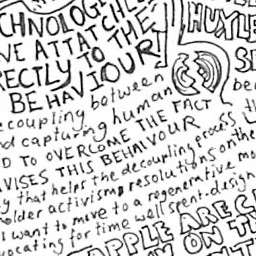 CHNOLOGI
VE ATTATCHED
RECTLY TO THE
BEHAVIOUR!
HUXLE
decoupling between
nd capturing human
D TO OVERCOME THE FACT
VISES THIS BEHAIVOUR
y that helps the decoupling process
holder activism, resolutions on the
I want to move to a regenerative mo
vocating for time well spent. design
APPLE ARE
ON